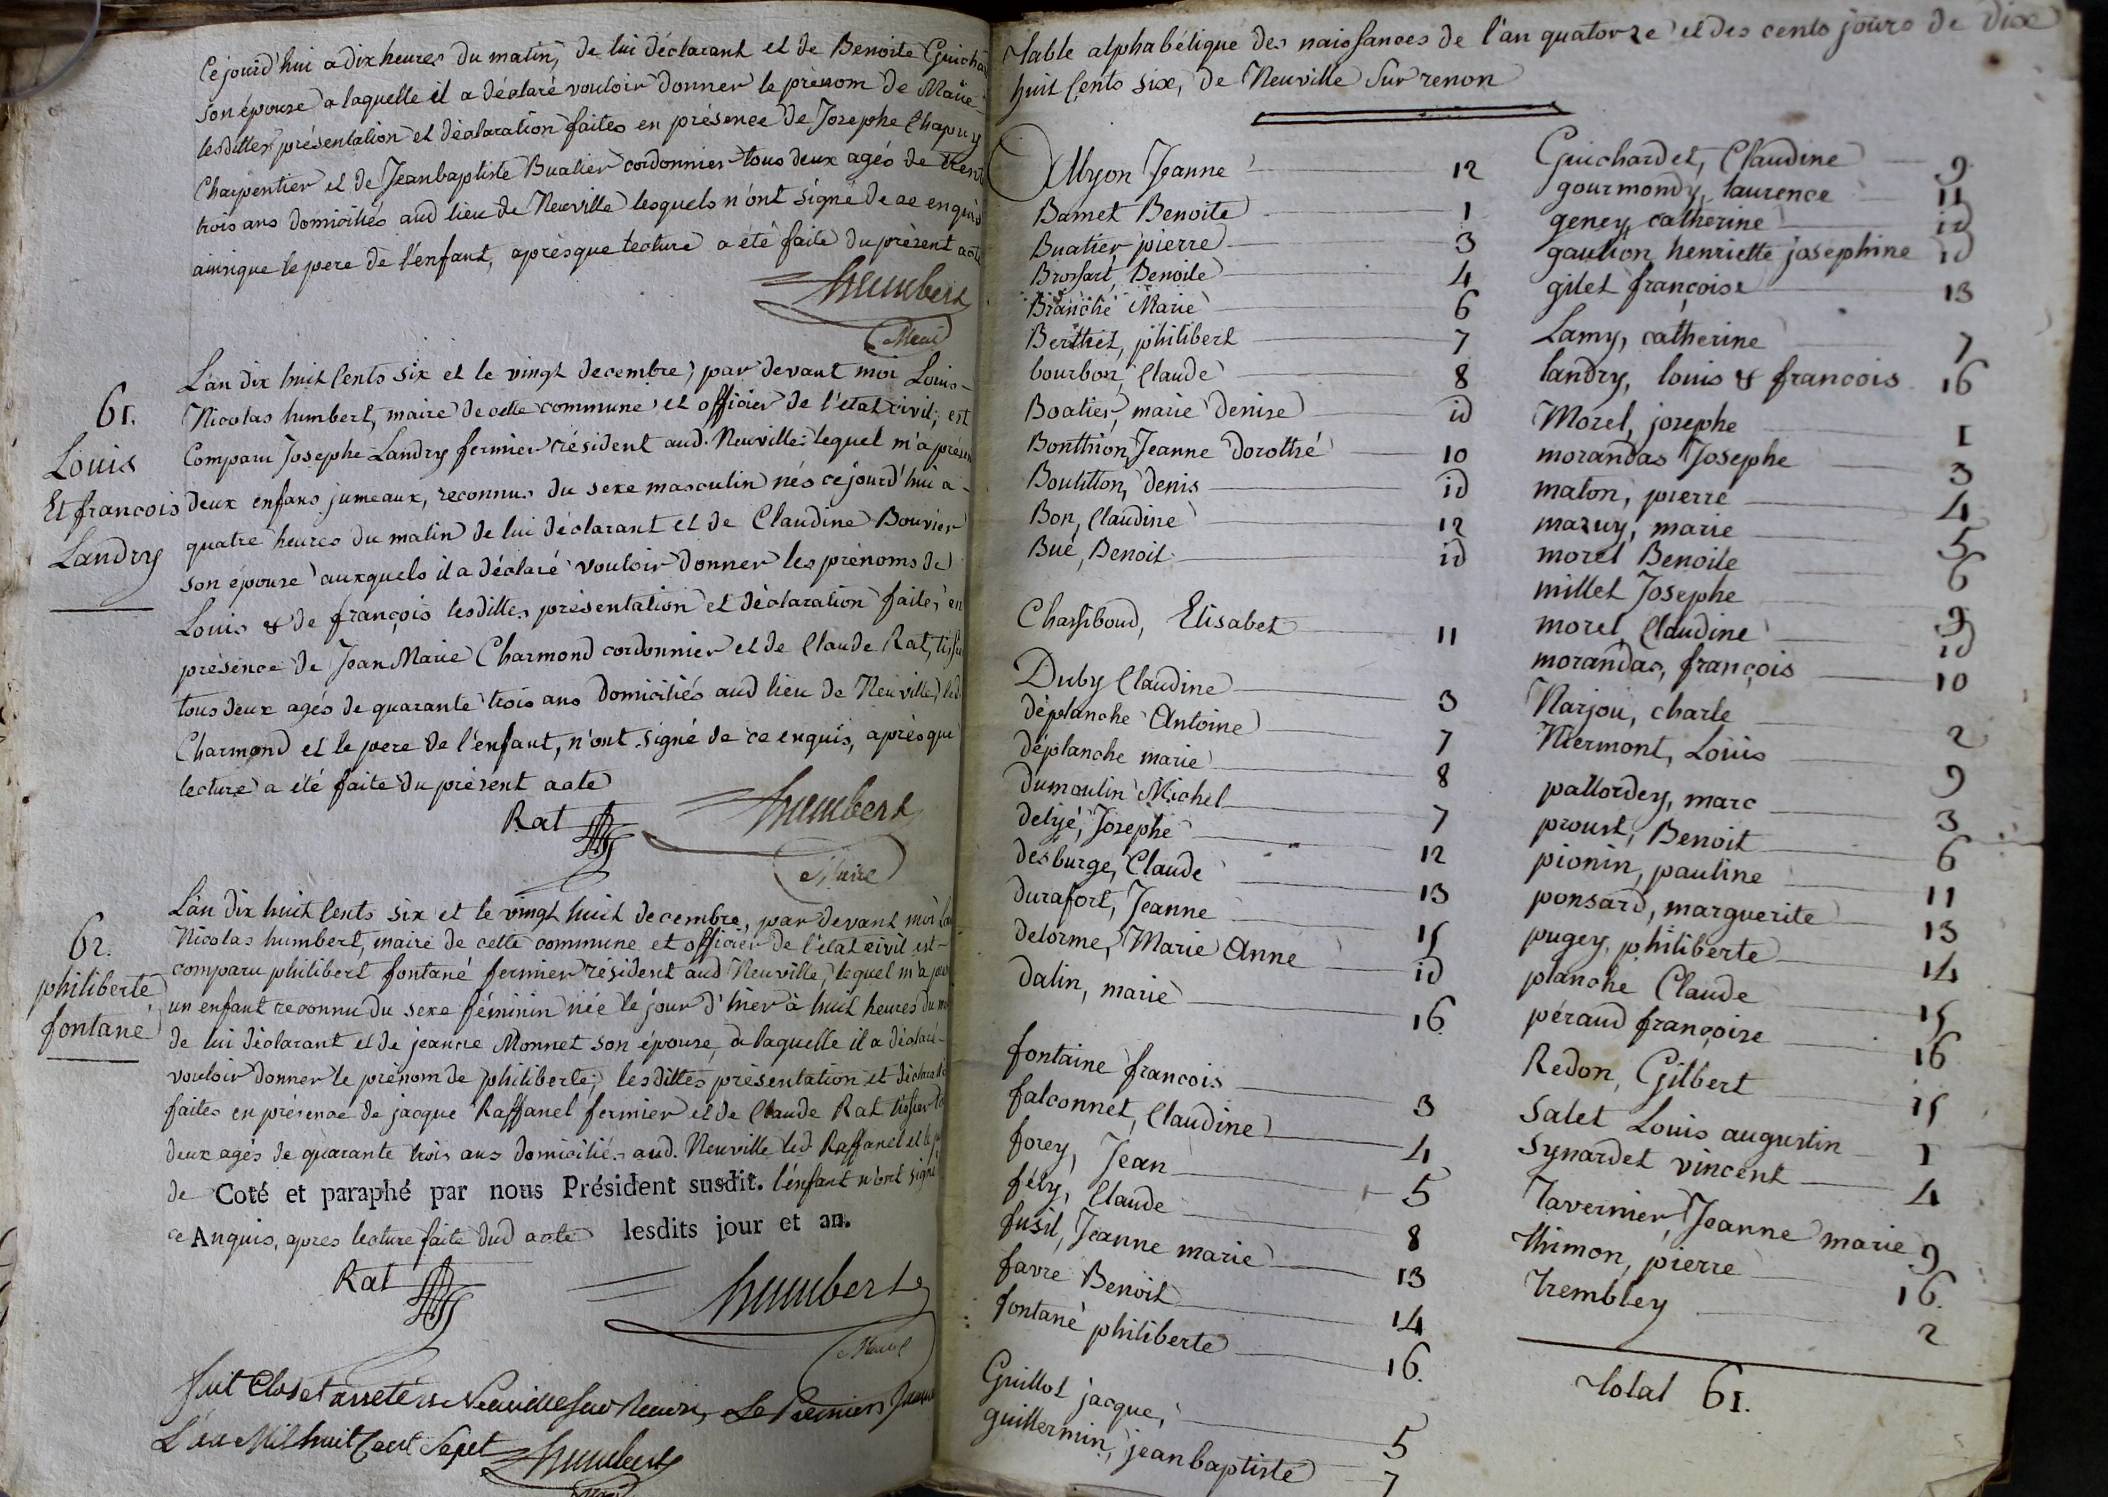 Cejourd'hui a dix heures du matin, de lui déclarant et de Benoite
son épouse a laquelle il a déclaré vouloir donner le prénom de Marie
lesdittes présentation et déclaration faites en présence de Josephe Chapuy
Charpentier et de Jeanbaptiste Buatier cordonnier tous deux agés de
trois ans domiciliés aud lieu de Neuville lesquels n'ont signé de ce enquis
ainsique le pere de l'enfant, aprèsque lecture a été faite du présent acte
humbert
Maire
61.
Louis
Et francois
Landry
L'an dix huit Cents six et le vingt decembre, par devant moi Louis-
Nicolas humbert, maire de cette commune et officier de l'etat civil, est
Comparu Josephe Landry fermier résident aud. Neuville lequel m'a
deux enfans jumeaux, reconnus du sexe masculin nés cejourd'hui a
quatre heures du matin de lui déclarant et de Claudine Bouvier
son épouse auxquels il a déclaré vouloir donner les prénoms de
Louis & de françois lesdittes présentation et déclaration faites en
présence de Jean Marie Charmond cordonnier et de Claude Rat,
tous deux agés de quarante trois ans domiciliés aud lieu de Neuville
Charmond et le pere de l'enfant, n'ont signé de ce enquis, après que
lecture a été faite du présent acte
Rat humbert
Maire
62.
philiberte
fontané
L'an dix huit Cents six et le vingt huit decembre, par devant moi
Nicolas humbert, maire de cette commune et officier de l'etat civil est-
comparu philibert fontané fermier résident aud Neuville, lequel m'a
un enfant reconnu du sexe féminin née le jour d'hier à huit heures du
de lui déclarant et de jeanne Monnet son épouse, a laquelle il a déclaré-
vouloir donner le prénom de philiberte, lesdittes présentation et
faites en présence de jacque Raffanel fermier et de Claude Rat
deux agés de quarante trois ans domiciliés aud. Neuville led Raffanel et
de Coté et paraphé par nous Président susdit. l'enfant n'ont signé
ce Anquis, apres lecture faite dud acte lesdits jour et an.
Rat humbert
Maire
fait Clos et arreté a Neuville sur Renon Le Premier
L'an Mil huit Cent Sept humbert
Table alphabétique des naissances de l'an quatorze et des cents jours de dix
huit Cents six, de Neuville Sur renon
Allyon Jeanne 12
Bamet Benoite 1
Buatier, pierre 3
Brossart, Benoite 4
Branche Marie 6
Berthet, philibert 7
bourbon, Claude 8
Boatier, marie denise id
Bonthion, Jeanne dorothé 10
Boulitton, denis id
Bon, Claudine 12
Bué, Benoit id
Chassiboud, Elisabet 11
Duby Claudine 3
déplanche Antoine 7
déplanche marie 8
dumoulin Michel 7
delyé, Josephe 12
desburge, Claude 13
durafort, Jeanne 15
delorme, Marie Anne id
dalin, marie 16
fontaine francois 3
falconnet, Claudine 4
forey, Jean 5
fély, Claude 8
fusil, Jeanne marie 13
favre Benoit 14
fontané philiberte 16.
Guillot jacque, 5
guillermin, jeanbaptiste 7
Guichardet, Claudine 9
gourmondy, laurence 11
geney, catherine id
gaulion, henriette josephine id
gilet françoise 13
Lamy, catherine 7
landry, louis & francois 16
Morel, josephe 1
morandas Josephe 3
maton, pierre 4
mazuy, marie 5
morel Benoite 6
millet Josephe 9
morel, Claudine id
morandas, françois 10
Narjou, charle 2
Niermont, Louis 9
pallordey, marc 3
proust, Benoit 6
pionin, pauline 11
ponsard, marguerite 13
pugey, philiberte 14
planche Claude 15
péraud françoise 16
Redon, Gilbert 15
Salet Louis augustin 1
Synardet vincent 4
Tavernier, Jeanne marie 9
thimon, pierre 16.
Trembley 2
Total 61.